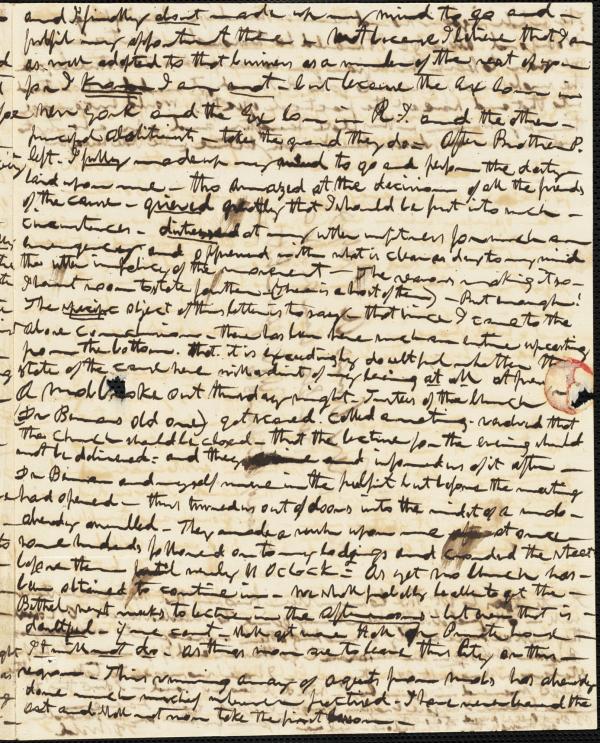 and I finally about made up my mind to go and —
fulfil my appointment there — Not because I believe that I am
as well adapted to that business as a number of the rest of you
for I know I am not — but because the Ex Com in
New York and the Ex Com in R.I. and the other —
principal Abolitionists — take the ground they do — After Brother P.
left. I fully made up my mind to go and perform the duty
laid upon me — tho amazed at the decision of all the friends
of the cause — grieved greatly that I should be put into such —
circumstances — distressed at my utter unfitness for such an
emergency and oppressed with what is clear as day to my mind
the utter impolicy of the movement — The reasons making it so —
I have not room to state further (there is a host of them) — But enough!
The specific object of this letter is to say — that since I came to the
above conclusion — there has been here such an entire upsetting
from the bottom. that it is exceedingly doubtful whether the
state of the cause here will admit of my being at all
A mob broke out thursday night — Trustees of the Church
Dr Beman's old one) got scared. called a meeting — resolved that
the Church should be closed — that the lecture for the evening should
not be delivered — and they and informed us of it after —
Dr Beman and myself were in the pulpit but before the meeting
had opened — thus turned us out of doors into the midst of a mob —
already assembled — They made a rush upon me at once —
some hundreds followed on to my lodgings and crowded the street
before them until nearly 11 O Clock — As yet no Church has —
been obtained to continue in — We shall probably be able to get the —
Bethel next week to lecture in the afternoons — but even that is —
doubtful — if we cant — shall get some Hall or Private house —
It will not do — as things now are to leave this City on this —
region — This running away of agents from mobs has already
done much mischief where practised — I have never heard the
and shall not now take the first lesson —